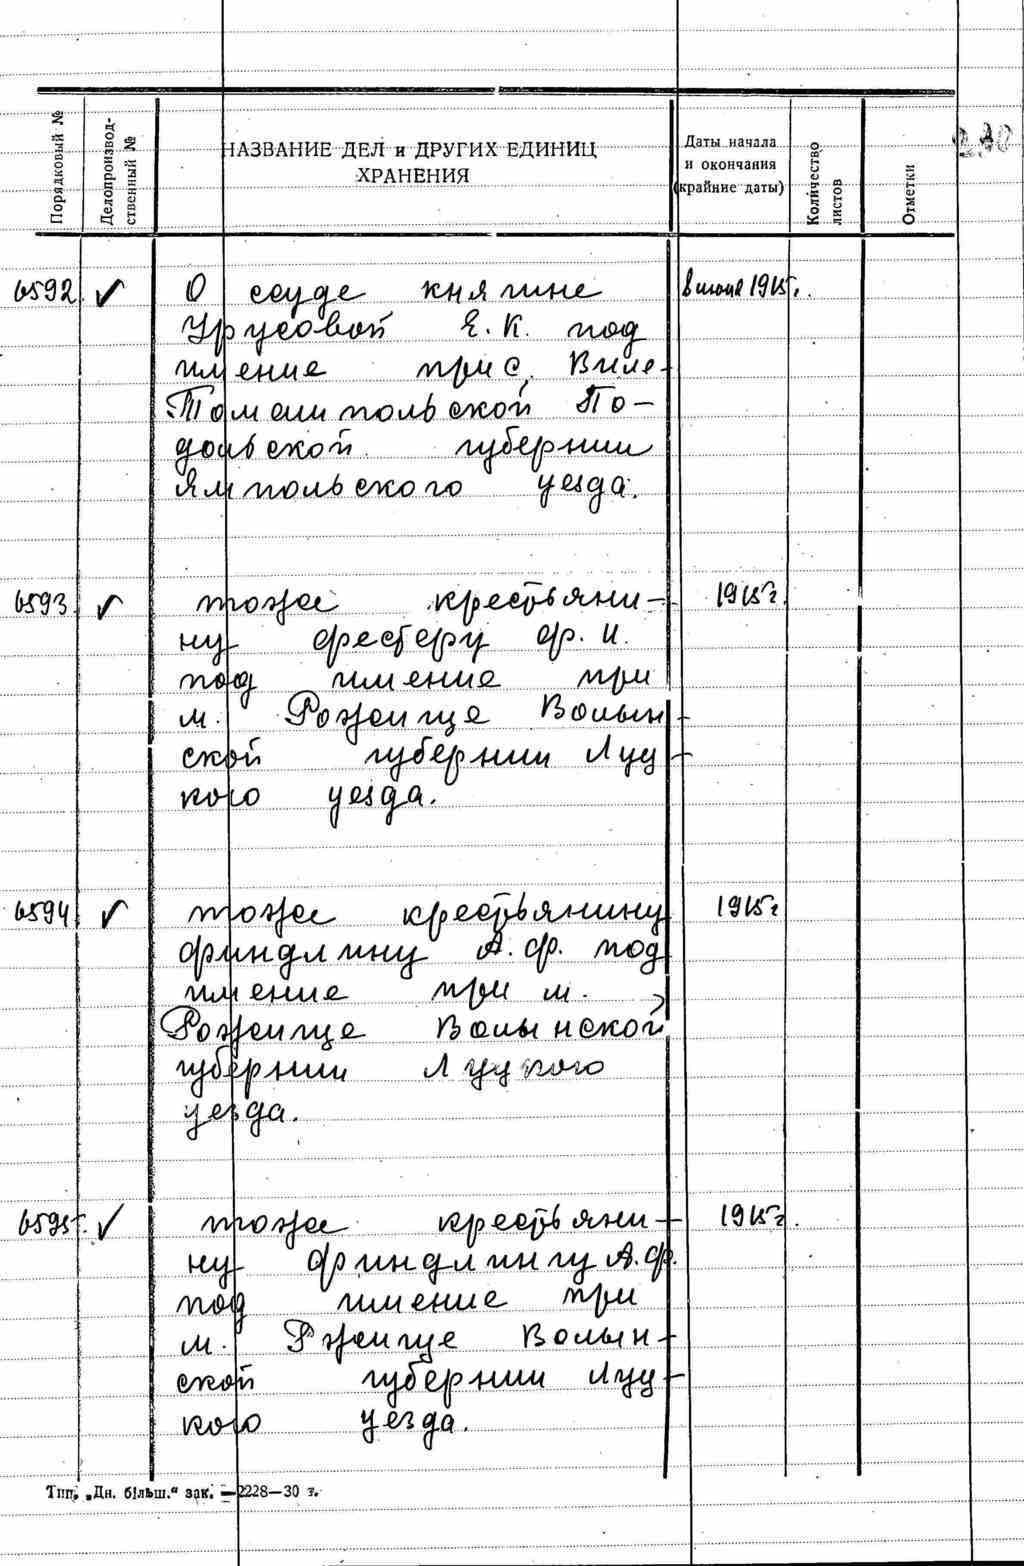 Порядковый №
Делопроизвод-
ственный №
НАЗВАНИЕ ДЕЛ и ДРУГИХ ЕДИНИЦ
ХРАНЕНИЯ
Даты начала
и окончания
(крайние даты)
Количество
листов
Отметки
6592 ✓ О ссуде княгине 1915г.
Урусовой Е. К. под
имение при с. Виле-
Томашпольской По-
дольской губернии
Ямпольского уезда.
6593 ✓ тоже крестьяни- 1915г.
ну Фестеру Ф. И.
под имение при
м. Рожище Волын-
ской губернии Луц-
кого уезда.
6594 ✓ тоже крестьянину 1915г
Финдлину А. Ф. под
имение при м.
Рожище Волынской
губернии Луцкого
уезда.
6595. ✓ тоже крестьяни- 1915г.
ну Финдлингу А. Ф.
под имение при
м. Ржище Волын-
ской губернии Луц-
кого уезда.
Тип. „Дн. більш.“ зак. —2228—30 з.